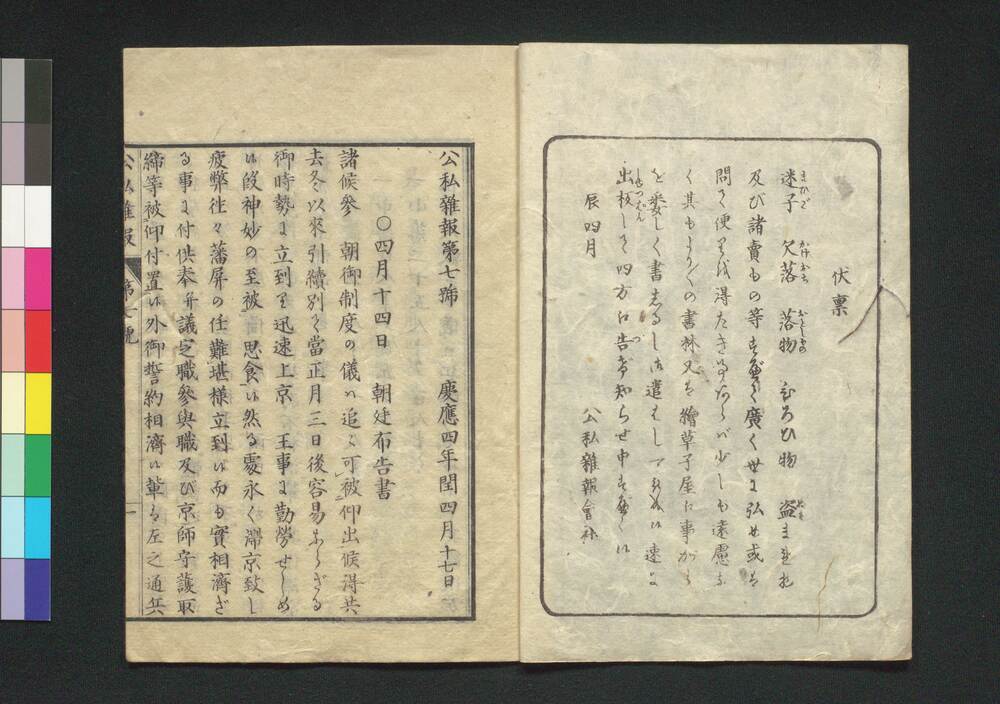 伏稟
迷子 欠落 落物 ひろひ物 盗まれ
及び諸賣もの等すべて廣く世に弘め或は
問て便りを得たき事あらバ少しも遠慮な
く其もより〱の書林又は繪草子屋に事がら
を委しく書しるし御遣はし下され候ハヾ速に
出板して四方に告げ知らせ申すべく候
辰四月
公私雜報會社
公私雜報第七號 慶應四年閏四月十七日
○四月十四日 朝廷布告書
諸候參 朝御制度の儀ハ追々可被仰出候得共
去冬以來引續別て當正月三日後容易ならざる
御時勢に立到り迅速上京 王事に勤勞せしめ
候段神妙の至被 思食候然る處永く滯京致し
疲弊往々藩屏の任難堪樣立到候而も實相濟ざ
る事に付供奉并議定職參與職及び京師守護取
締等被仰付置候外御誓約相濟候輩は左之通共
公私雜報 第七號 一